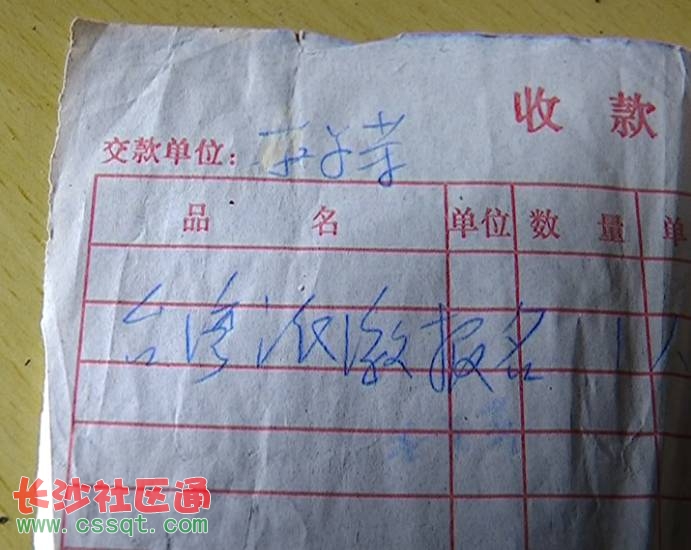 收款
交款单位:
品名 单位 数量 单
台湾 缴报名 1人
长沙社区通
www.cssqt.com